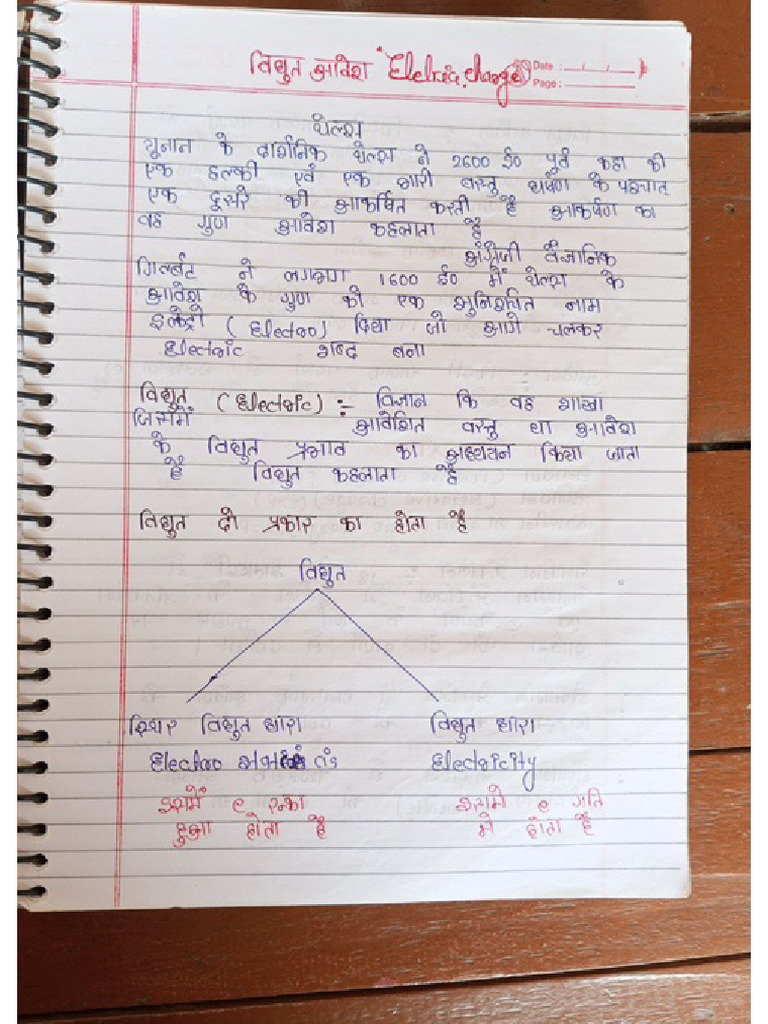 विद्युत आवेश "Eletric charge
Date :
Page :
थेल्स
यूनान के दार्शनिक थेल्स ने 2600 ई० पूर्व कहा की
एक हल्की एवं एक भारी वस्तु घर्षण के पश्चात्
एक दूसरे की आकर्षित करती है आकर्षण का
वह गुण आवेश कहलाता है
अंग्रेजी वैज्ञानिक
गिल्बर्ट ने लगभग 1600 ई० में थेल्स के
आवेश के गुण को एक सुनिश्चित नाम
इलेक्ट्रो (Electro) दिया जो आगे चलकर
Electric शब्द बना
विद्युत (Electric) :- विज्ञान कि वह शाखा
जिसमें आवेशित वस्तु या आवेश
के विद्युत प्रभाव का अध्ययन किया जाता
है विद्युत कहलाता है
विद्युत दो प्रकार का होता है
विद्युत
स्थिर विद्युत धारा विद्युत धारा
Electro Electricity
इसमें e रुका इसमे e गति
हुआ होता है मे होता है